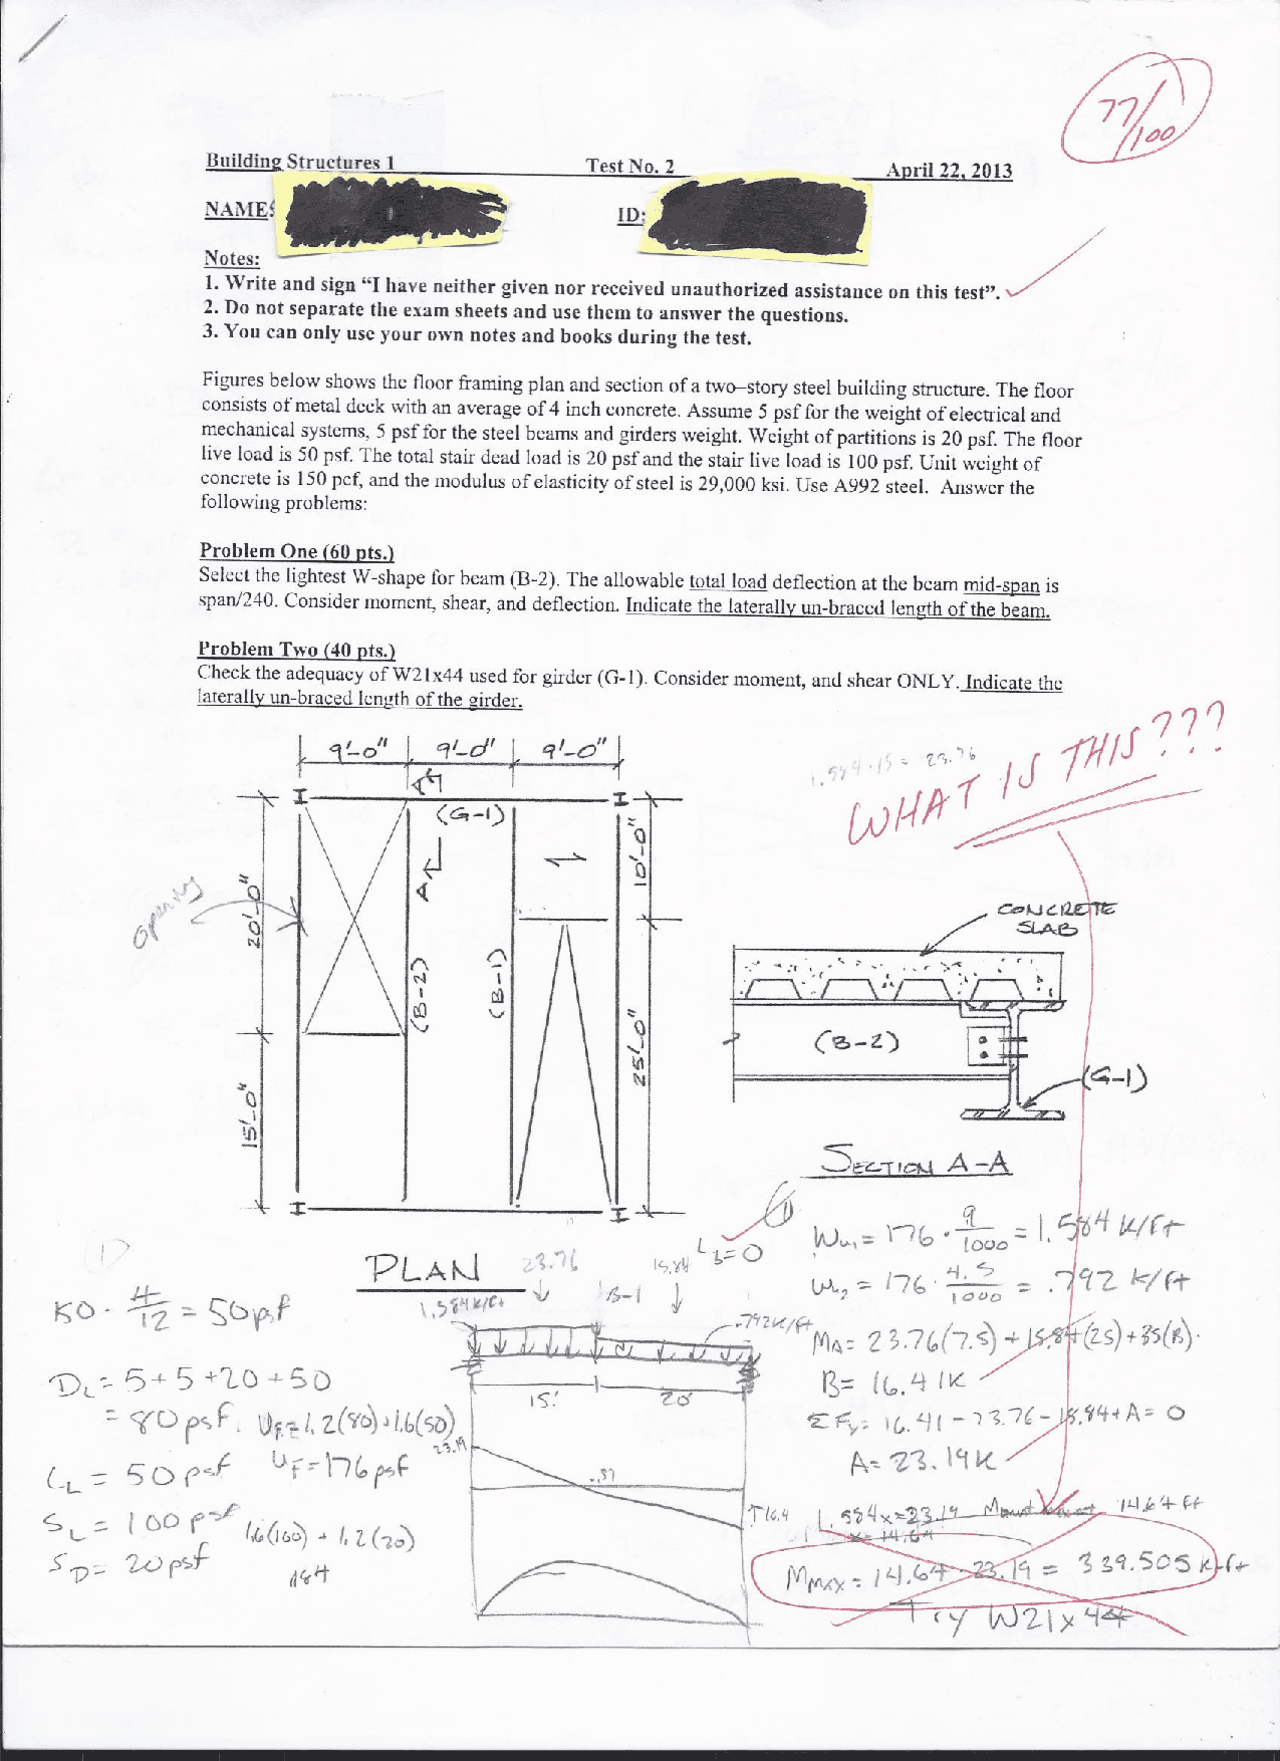 77/100
Building Structures 1 Test No. 2 April 22, 2013
NAME: ID:
Notes:
1. Write and sign “I have neither given nor received unauthorized assistance on this test”.
2. Do not separate the exam sheets and use them to answer the questions.
3. You can only use your own notes and books during the test.
Figures below shows the floor framing plan and section of a two–story steel building structure. The floor
consists of metal deck with an average of 4 inch concrete. Assume 5 psf for the weight of electrical and
mechanical systems, 5 psf for the steel beams and girders weight. Weight of partitions is 20 psf. The floor
live load is 50 psf. The total stair dead load is 20 psf and the stair live load is 100 psf. Unit weight of
concrete is 150 pcf, and the modulus of elasticity of steel is 29,000 ksi. Use A992 steel. Answer the
following problems:
Problem One (60 pts.)
Select the lightest W-shape for beam (B-2). The allowable total load deflection at the beam mid-span is
span/240. Consider moment, shear, and deflection. Indicate the laterally un-braced length of the beam.
Problem Two (40 pts.)
Check the adequacy of W21x44 used for girder (G-1). Consider moment, and shear ONLY. Indicate the
laterally un-braced length of the girder.
9'-0" 9'-0" 9'-0"
1.584·15 = 23.76
WHAT IS THIS???
A
(G-1)
10'-0"
A
opening
20'-0"
(B-2)
(B-1)
25'-0"
15'-0"
CONCRETE
SLAB
(B-2)
(G-1)
SECTION A-A
PLAN
1
Lb=0
Wu1 = 176 · 9/1000 = 1.584 k/ft
Wu2 = 176 · 4.5/1000 = .792 k/ft
MA= 23.76(7.5) + 15.84(25)+35(B)·
B= 16.41K
ΣFy= 16.41-23.76-15.84+A= 0
A= 23.19K
1.584x=23.19 14.64 ft
x= 14.64
Mmax = 14.64 · 23.19 = 339.505 k-ft
Try W21x44
1
150 · 4/12 = 50psf
DL= 5+5+20+50
= 80psf. UF=1.2(80)+1.6(50)
LL = 50psf UF=176psf
SL = 100psf 1.6(100) + 1.2(20)
SD= 20psf 184
23.76 15.84
1.584k/ft B-1 .792k/ft
15' 20'
23.19
.57
16.4